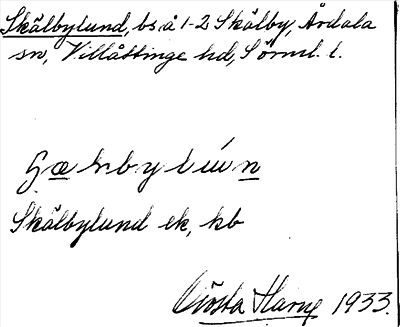 Skälbylund, bs. å 1-2 Skälby, Årdala
sn, Villåttinge hd, Sörml. l.
Skälbylund ek, kb
Gösta Harne 1933.